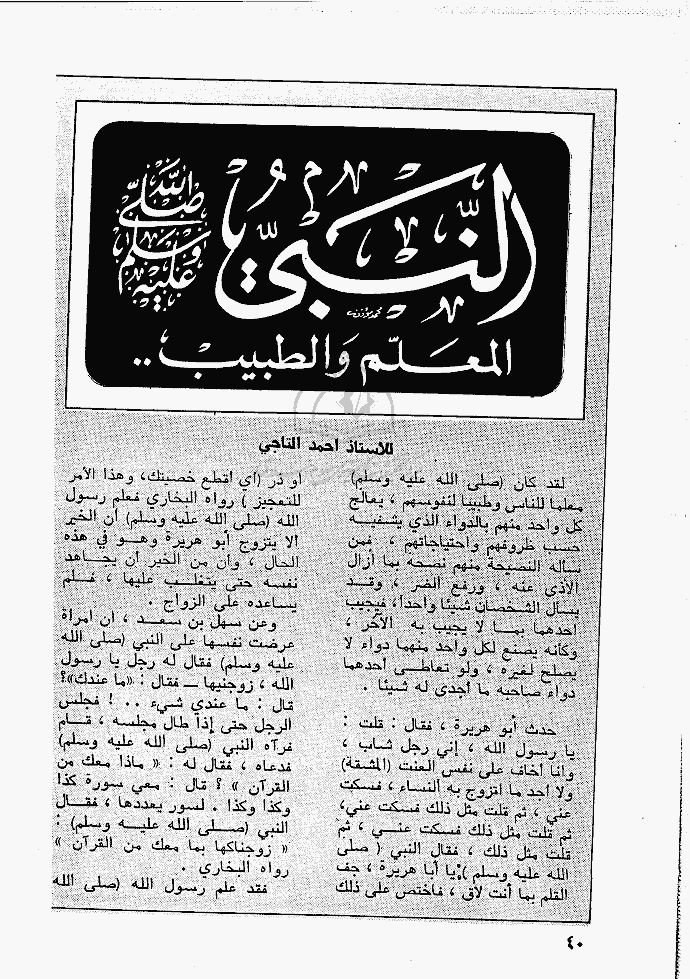 النبي
صلى الله عليه وسلم
المعلم والطبيب ..
للأستاذ احمد التاجي
لقد كان (صلى الله عليه وسلم)
معلما للناس وطبيبا لنفوسهم ، يعالج
كل واحد منهم بالدواء الذي يشفيه
حسب ظروفهم واحتياجاتهم ، فمن
سأله النصيحة منهم نصحه بما أزال
الأذى عنه ، ورفع الضر ، وقد
يسأل الشخصان شيئا واحدا، فيجيب
أحدهما بما لا يجيب به الآخر ،
وكأنه يصنع لكل واحد منهما دواء لا
يصلح لغيره ، ولو تعاطى أحدهما
دواء صاحبه ما أجدى له شيئا .
حدث أبو هريرة ، فقال : قلت :
يا رسول الله ، إني رجل شاب ،
وأنا أخاف على نفس العنت (المشقة)
ولا اجد ما اتزوج به النساء ، فسكت
عني ، ثم قلت مثل ذلك فسكت عني،
ثم قلت مثل ذلك فسكت عني ، ثم
قلت مثل ذلك ، فقال النبي ( صلى
الله عليه وسلم ):يا أبا هريرة ، جف
القلم بما أنت لاق ، فاختص على ذلك
او ذر (أي اقطع خصيتك، وهذا الأمر
للتعجيز ) رواه البخاري فعلم رسول
الله (صلى الله عليه وسلم) أن الخير
ألا يتزوج أبو هريرة وهو في هذه
الحال ، وأن من الخير أن يجاهد
نفسه حتى يتغلب عليها ، فلم
يساعده على الزواج .
وعن سهل بن سعد ، ان امرأة
عرضت نفسها على النبي (صلى الله
عليه وسلم) فقال له رجل يا رسول
الله ، زوجنيها — فقال : «ما عندك»؟
قال : ما عندي شيء .. ! فجلس
الرجل حتى إذا طال مجلسه ، قام
فرآه النبي (صلى الله عليه وسلم)
فدعاه ، فقال له : « ماذا معك من
القرآن » ؟ قال : معي سورة كذا
وكذا وكذا . لسور يعددها ، فقال
النبي (صلى الله عليه وسلم) :
« زوجناكها بما معك من القرآن »
رواه البخاري .
فقد علم رسول الله (صلى الله
٤٠